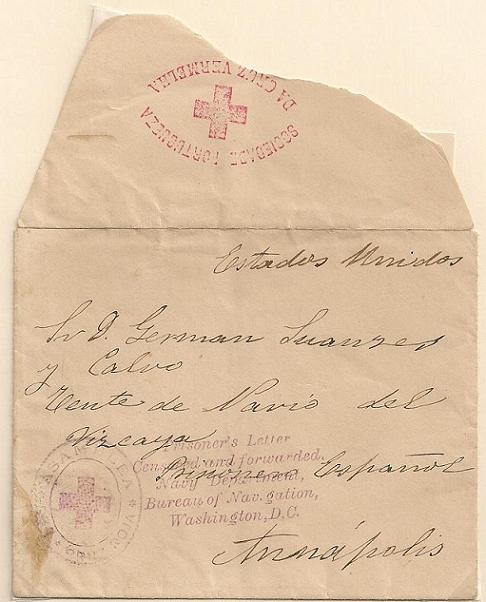 SOCIEDADE PORTUGUEZA
DA CRUZ VERMELHA
Estados Unidos
Sr D. German Suanzes
y Calvo
Tente de Navio del
Vizcaya
Prisionero Español
Annápolis
Prisoner's Letter
Censored and forwarded.
Navy Department,
Bureau of Navigation,
Washington, D.C.
ASAMBLEA